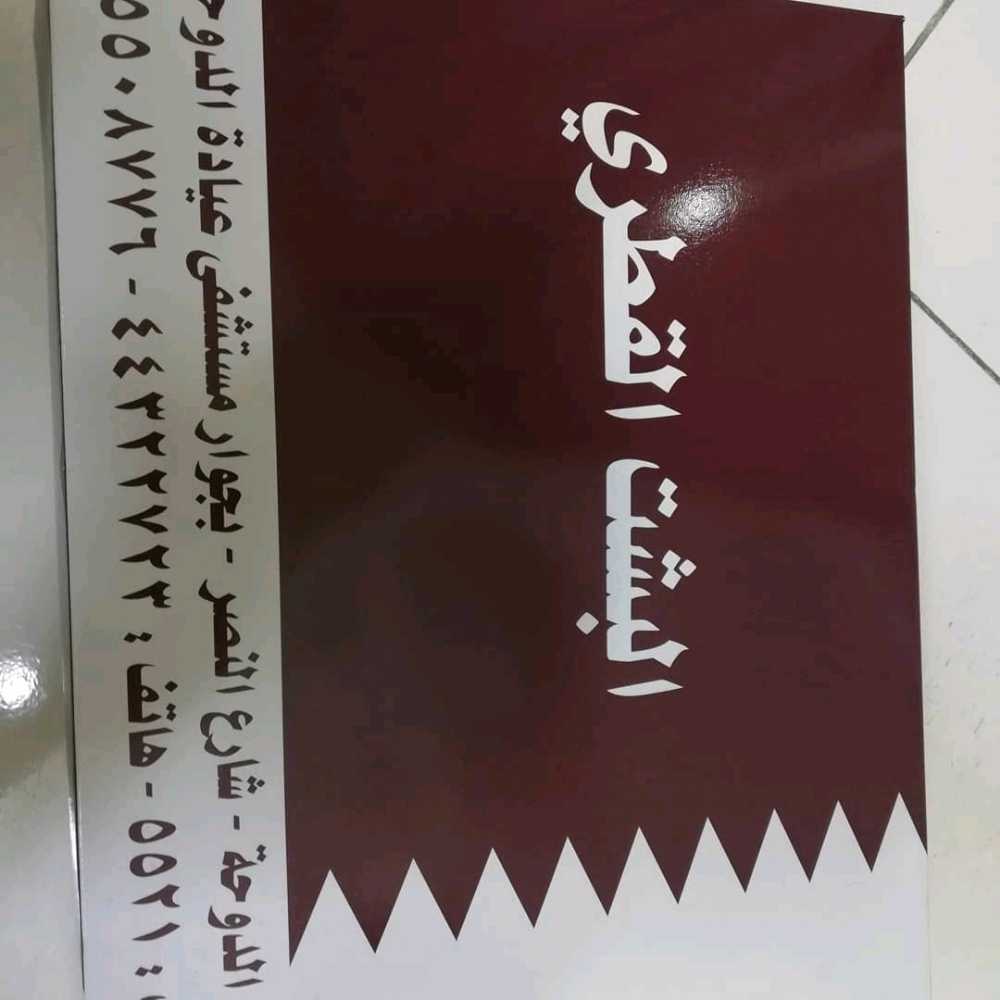 البشت القطري
الدوحة - شارع النصر - بجوار مستشفى عيادة الدوح
: ٥٥٢١ - هاتف : ٤٤٣٢٢٧٢٣ - ٥٥٠٨٧٧٦